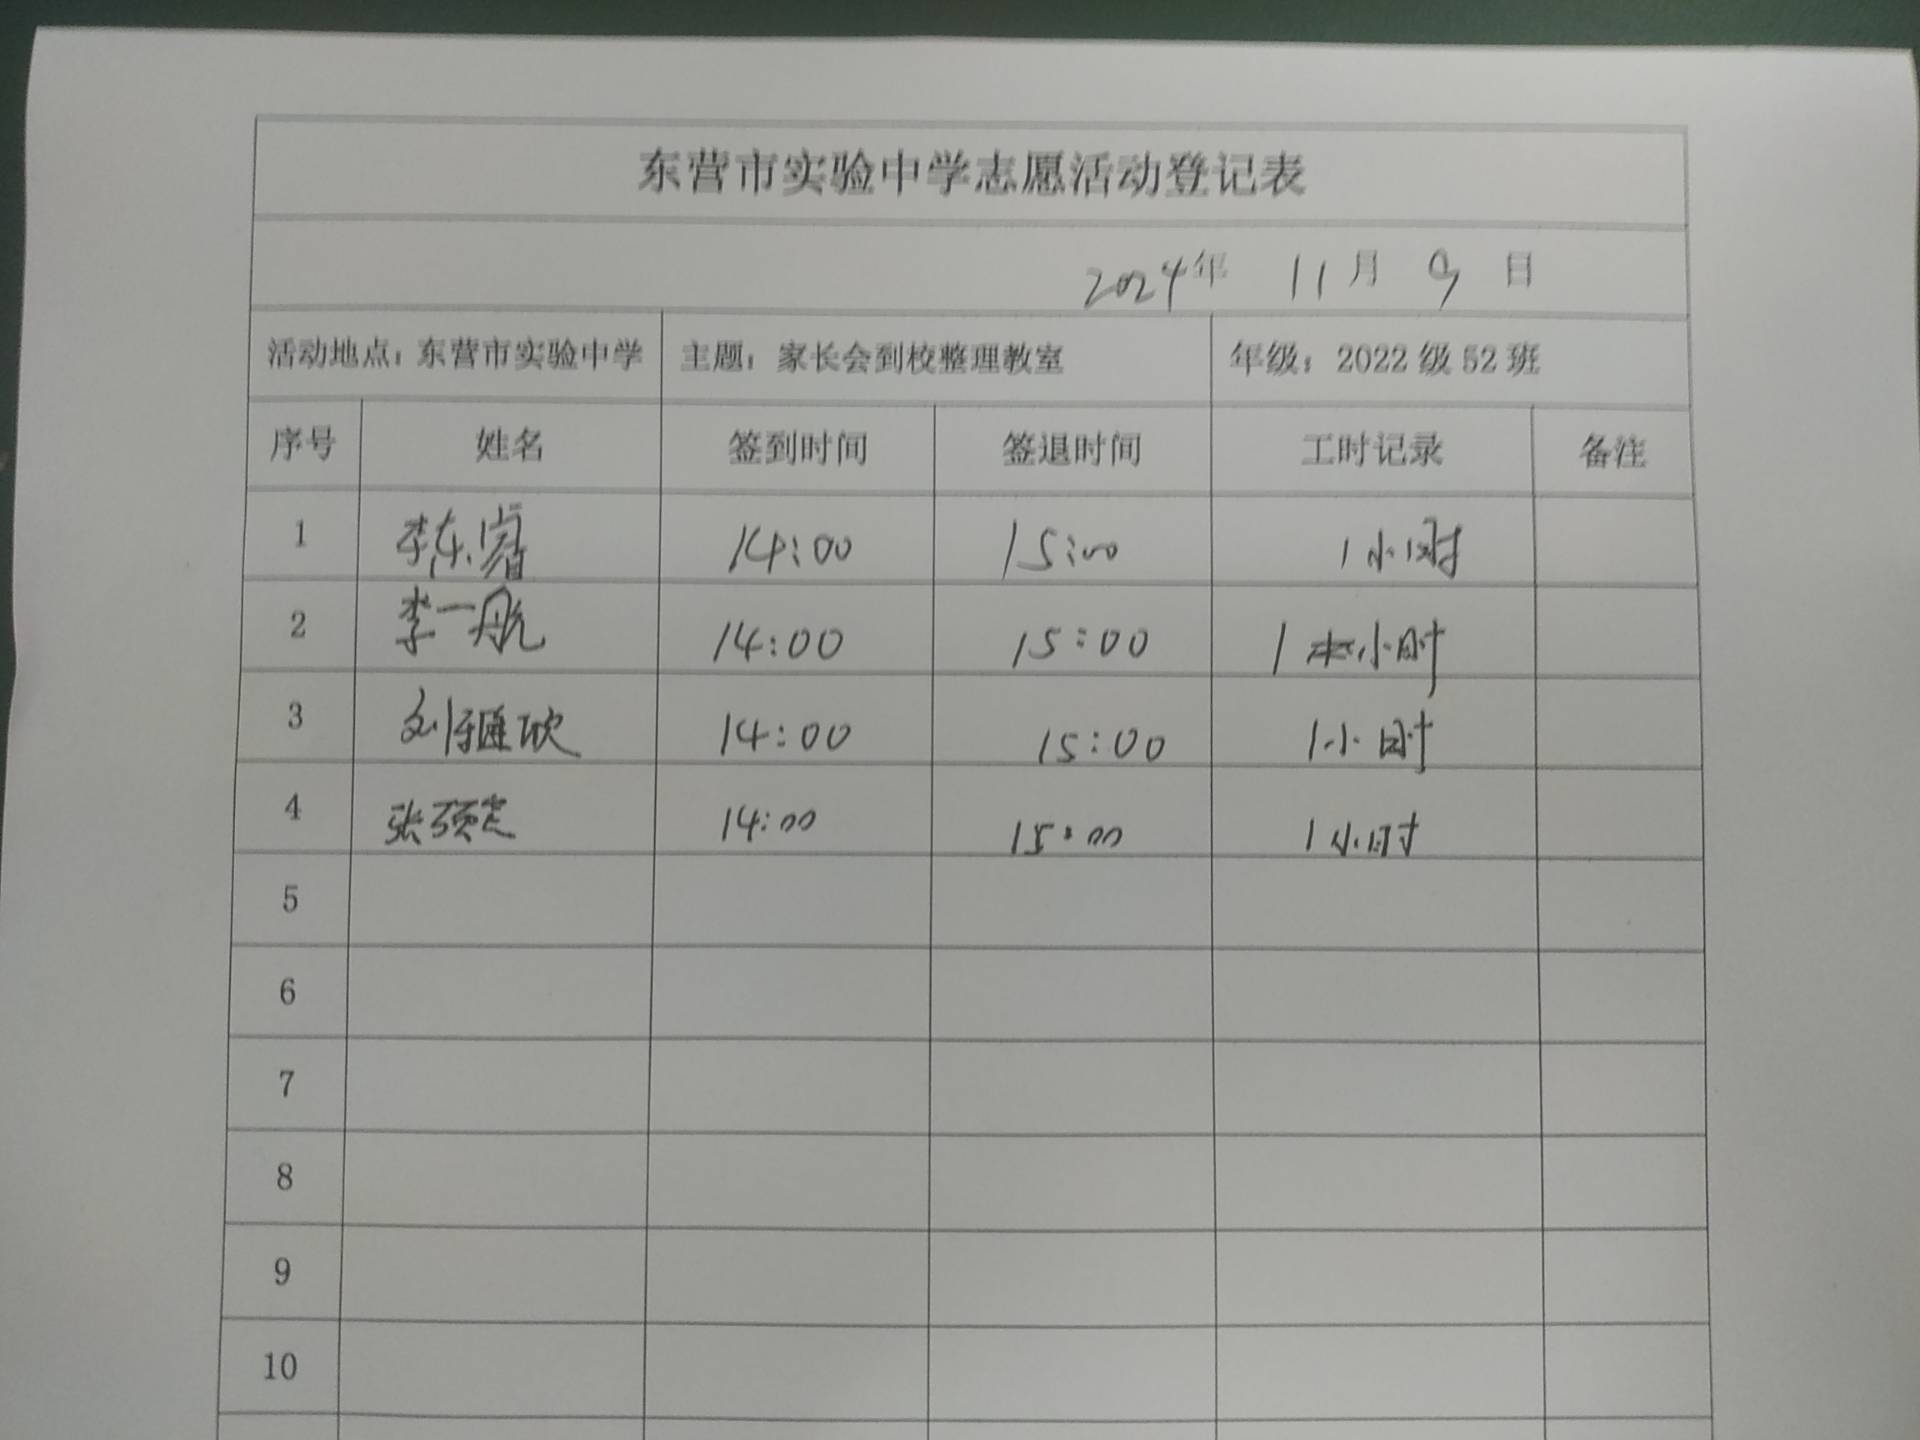 东营市实验中学志愿活动登记表
2024年 11月 9日
活动地点：东营市实验中学 主题：家长会到校整理教室 年级：2022级52班
序号 姓名 签到时间 签退时间 工时记录 备注
1 李东睿 14:00 15:00 1小时
2 李一航 14:00 15:00 1小时
3 刘 欣 14:00 15:00 1小时
4 张 14:00 15:00 1小时
5
6
7
8
9
10